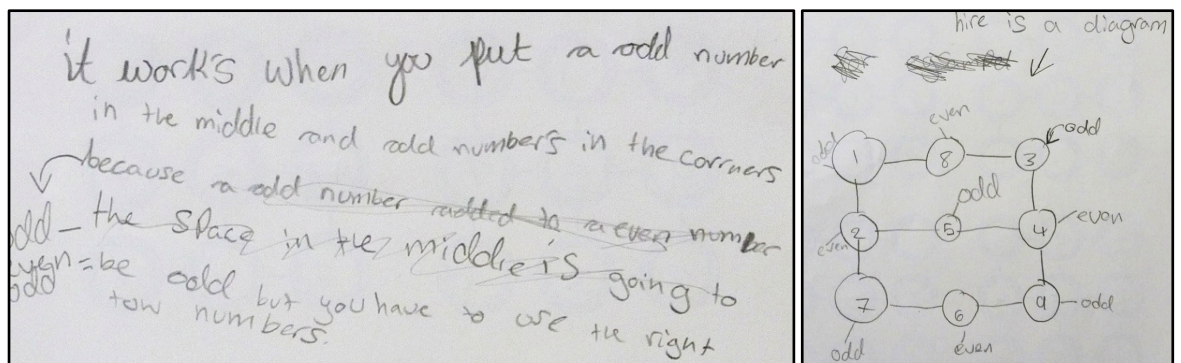 it works when you put a odd number
in the middle and odd numbers in the corrners
because a odd number added to a even number
odd – the space in the middle is going to
even = be odd but you have to use the right
odd tow numbers.
hire is a diagram
even
odd odd
1 8 3
odd
2 5 4 even
even
7 6 9 odd
odd even